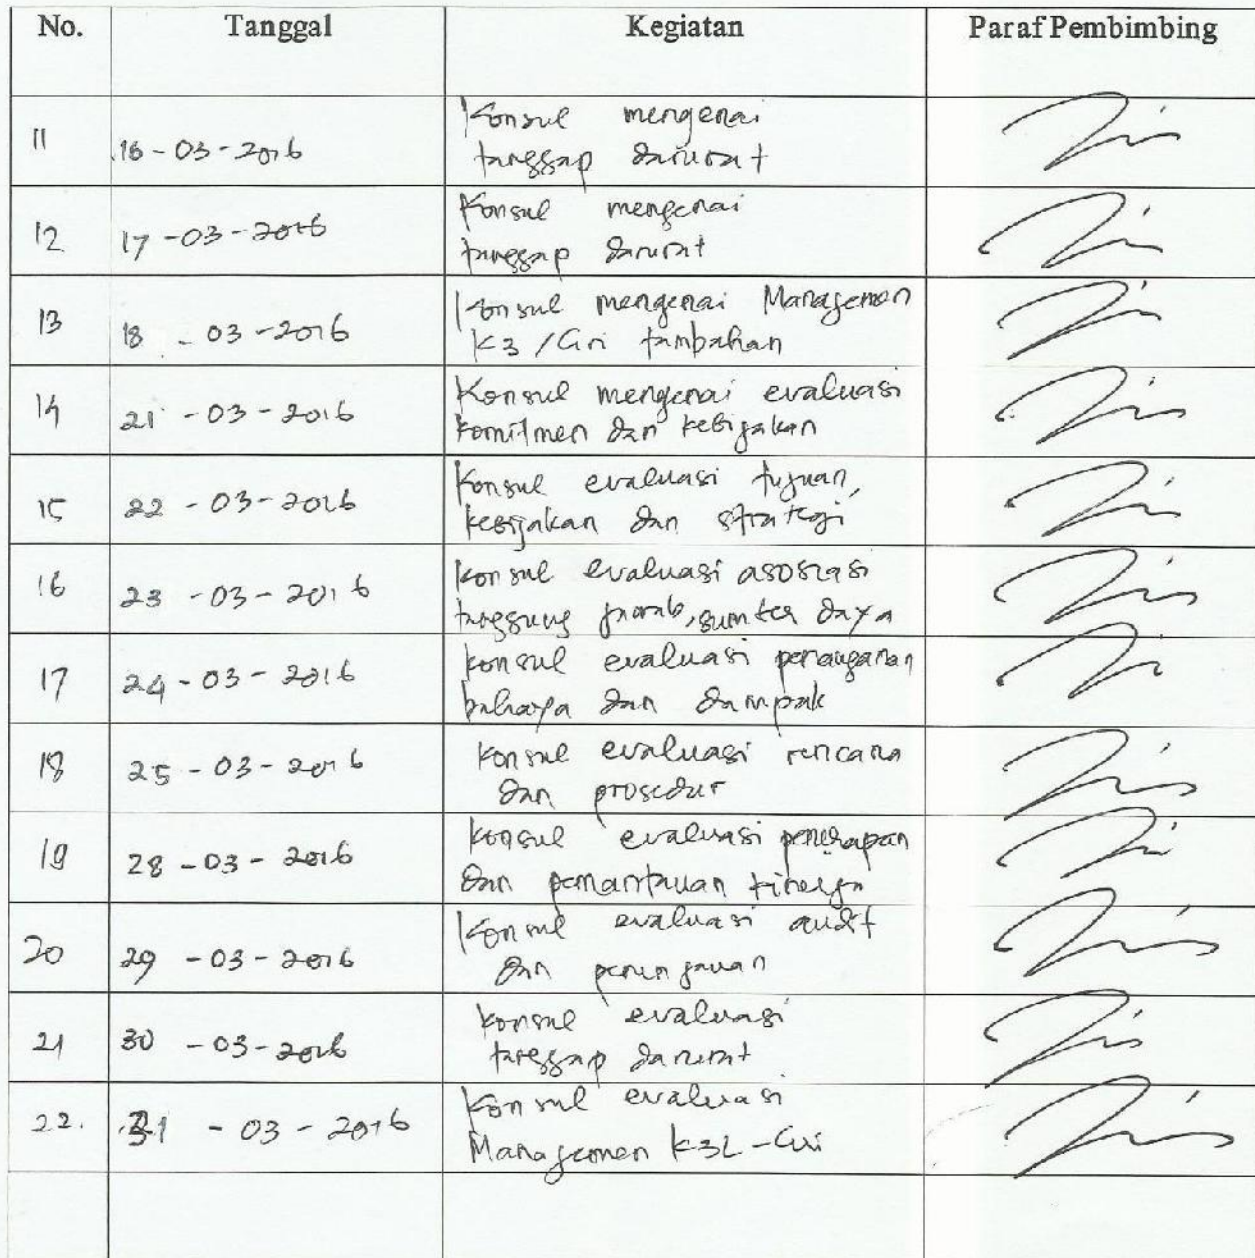 No. Tanggal Kegiatan Paraf Pembimbing
11 16-03-2016 Konsul mengenai
tanggap darurat
12 17-03-2016 Konsul mengenai
tanggap darurat
13 18-03-2016 Konsul mengenai Managemen
K3 / tambahan
14 21-03-2016 Konsul mengenai evaluasi
komitmen dan kebijakan
15 22-03-2016 Konsul evaluasi tujuan,
kebijakan dan strategi
16 23-03-2016 Konsul evaluasi asosiasi
tanggung jawab, sumber daya
17 24-03-2016 konsul evaluasi penanganan
bahaya dan dampak
18 25-03-2016 Konsul evaluasi rencana
dan prosedur
19 28-03-2016 konsul evaluasi penerapan
dan pemantauan kinerja
20 29-03-2016 Konsul evaluasi audit
dan peninjauan
21 30-03-2016 konsul evaluasi
tanggap darurat
22. 31-03-2016 Konsul evaluasi
Managemen K3L-